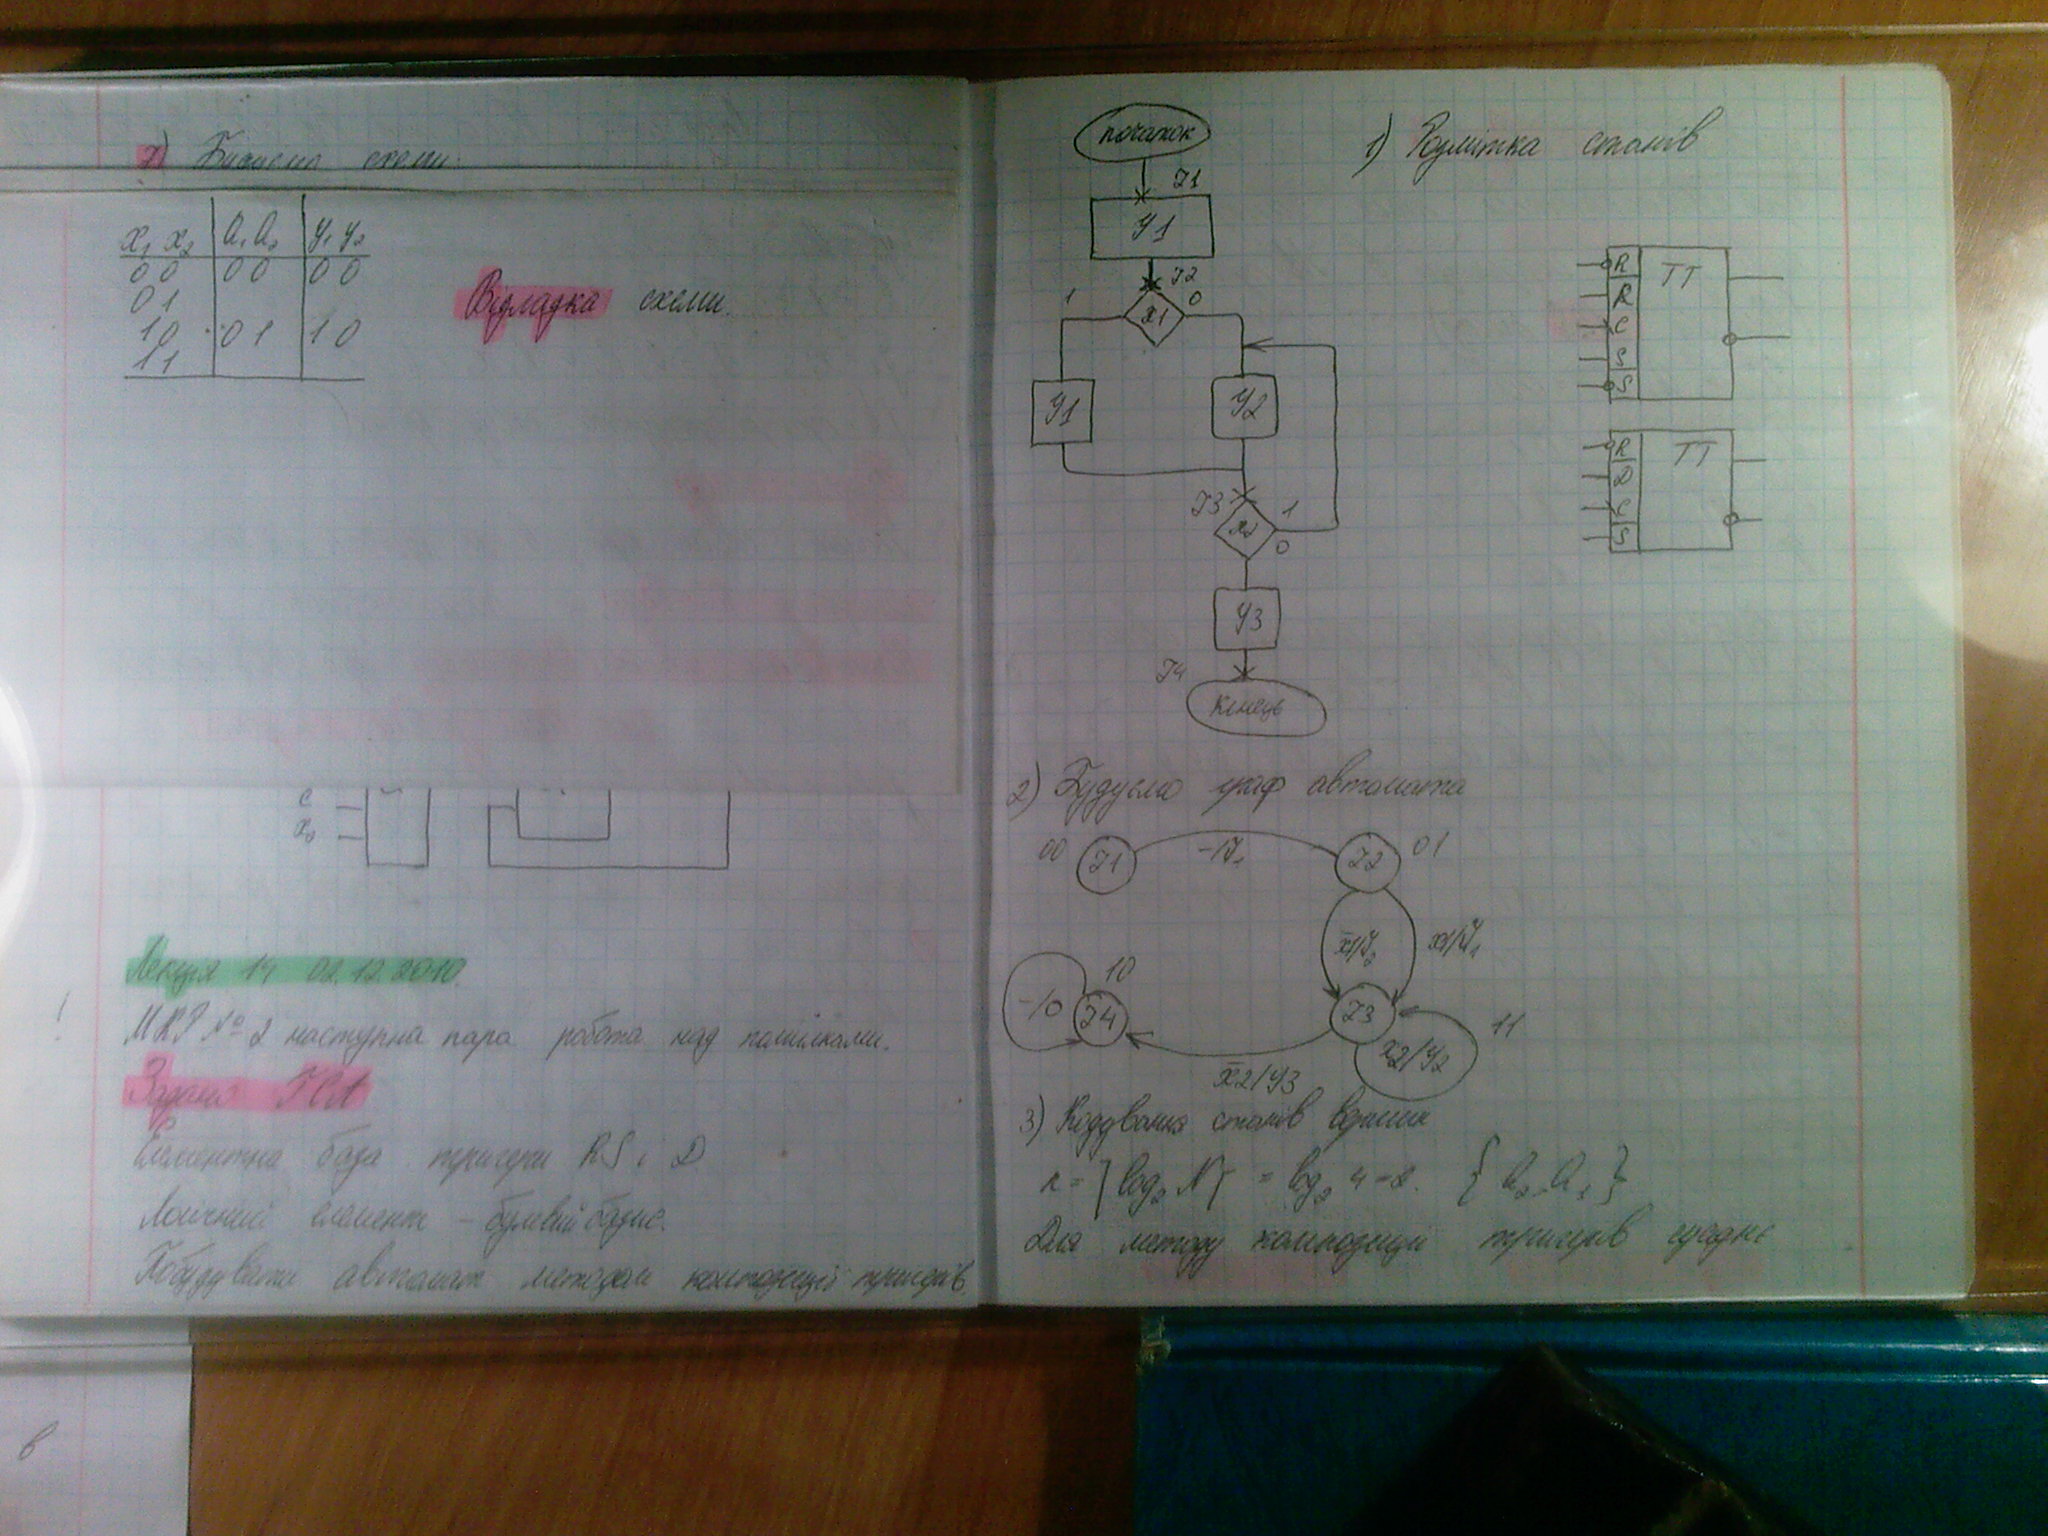 схеми.
x₁ x₂ a₁ a₂ y₁ y₂
0 0 0 0 0 0
0 1
1 0 0 1 1 0
1 1
Відладка схеми.
C
Лекція 14 02.12.2010.
! МКР № 2 наступна пара робота над помилками.
Задано ГСА
Елементна база тригери RS і D
Логічний елемент – булевий базис.
Побудувати автомат методом композиції тригерів
початок
Z1
Y1
Z2
1 x1 0
Y1 Y2
Z3
x2 1
0
Y3
Z4
Кінець
1) Розмітка станів
R TT
R
C
S
S
R TT
D
C
S
2) Будуємо граф автомата
00 Z1 -/Y1 Z2 01
x̄1/Y2 x1/Y1
10
-/0 Z4 Z3 11
x2/Y2
x̄2/Y3
3) Кодування станів вершин
n = ]log₂ N[ = log₂ 4 = 2. {a₂, a₁}
Для методу композиції тригерів
в